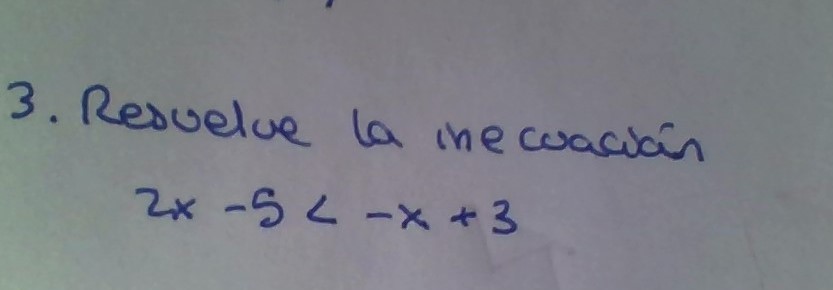 3. Resuelve la inecuación
2x - 5 < - x + 3